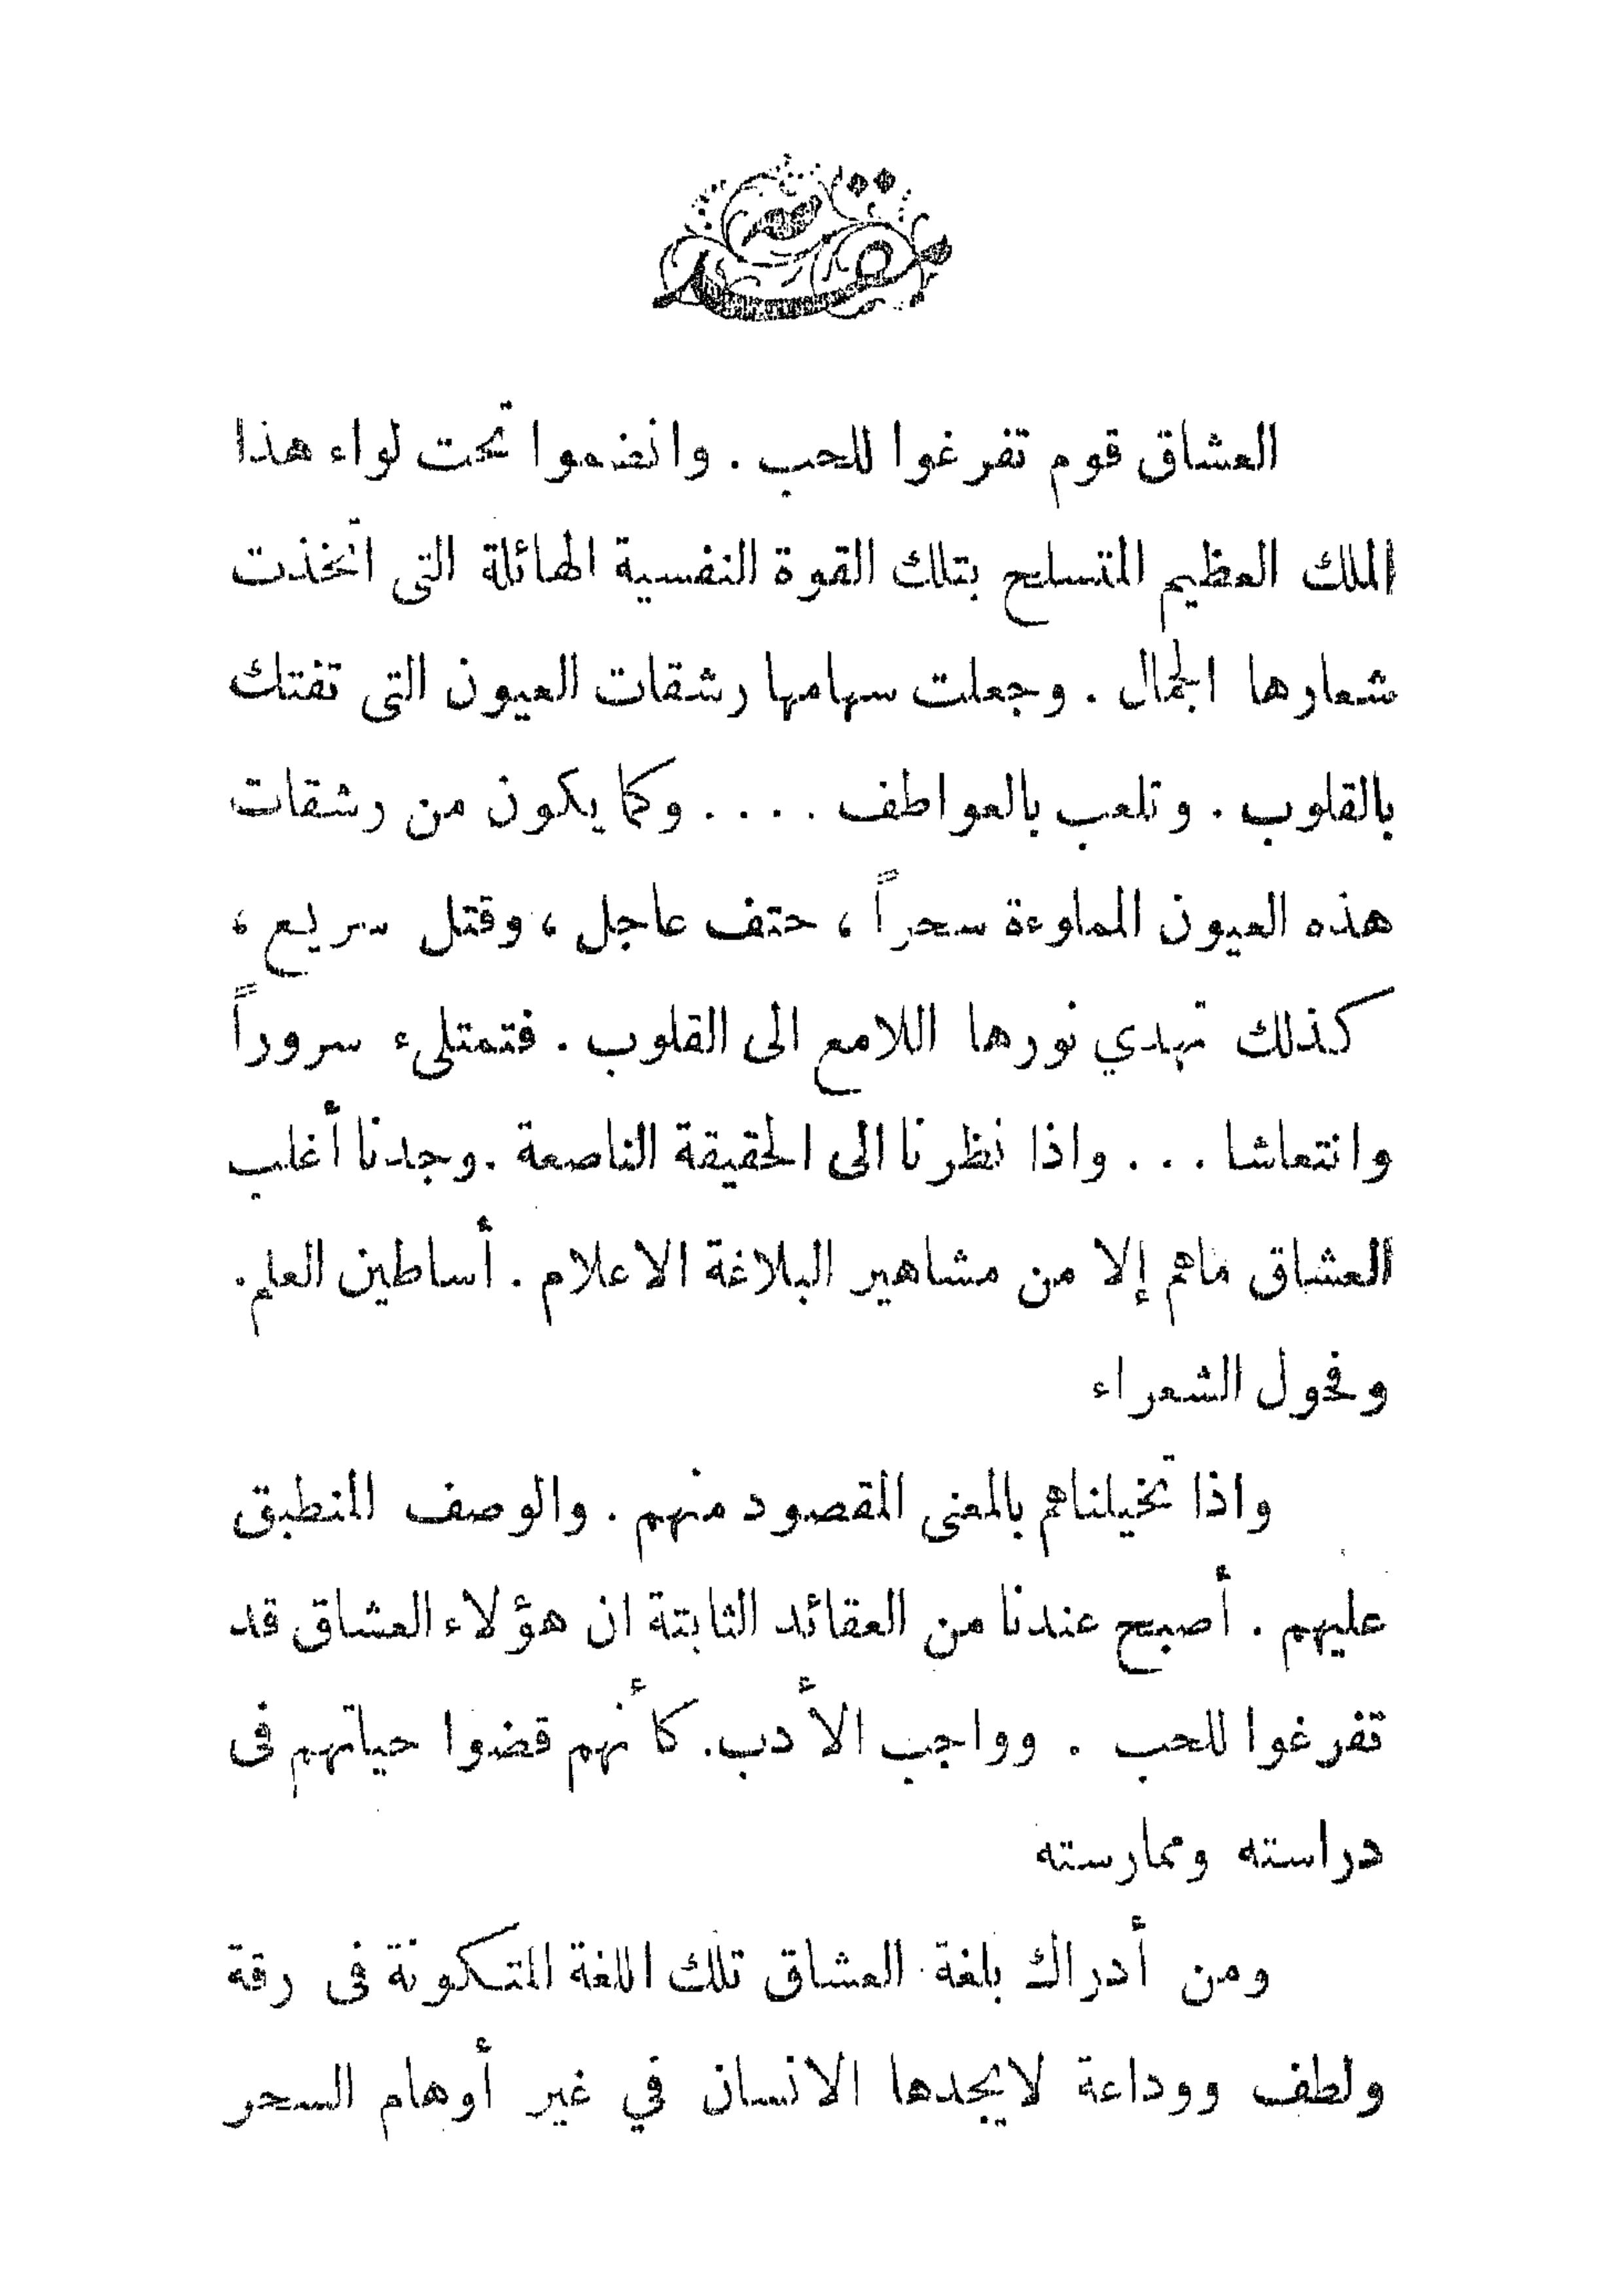 مقدمة
العشاق قوم تفرغوا للحب . وانضموا تحت لواء هذا
الملك العظيم المتسلح بتلك القوة النفسية الهائلة التى اتخذت
شعارها الجمال . وجعلت سهامها رشقات العيون التى تفتك
بالقلوب . وتلعب بالعواطف . . . . وكما يكون من رشقات
هذه العيون المملوءة سحراً ، حتف عاجل ، وقتل سريع ،
كذلك تهدي نورها اللامع الى القلوب . فتمتلىء سروراً
وانتعاشا . . . واذا نظرنا الى الحقيقة الناصعة . وجدنا أغلب
العشاق ماهم إلا من مشاهير البلاغة الاعلام . أساطين العلم .
وفحول الشعراء
واذا تخيلناهم بالمعنى المقصود منهم . والوصف المنطبق
عليهم . أصبح عندنا من العقائد الثابتة ان هؤلاء العشاق قد
تفرغوا للحب . وواجب الأدب . كأنهم قضوا حياتهم فى
دراسته وممارسته
ومن أدراك بلغة العشاق تلك اللغة المتكونة فى رقة
ولطف ووداعة لايجدها الانسان في غير أوهام السحر